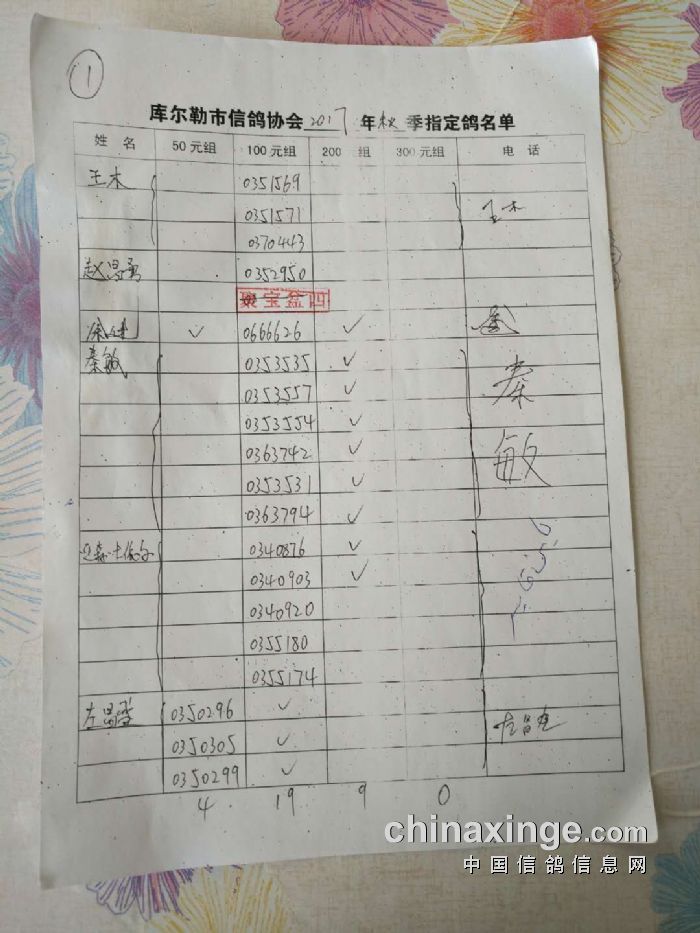 1
库尔勒市信鸽协会2017年秋季指定鸽名单
姓 名 50元组 100元组 200 组 300元组 电 话
王木 0351569
0351571 王木
0370443
赵 0352950
聚宝盆四
✓ 0666626 ✓
秦敏 0353535 ✓
0353557 ✓ 秦
0353554 ✓
0363742 ✓ 敏
0353531 ✓
0363794 ✓
0340876 ✓
0340903 ✓
0340920
0355180
0355174
左 0350296 ✓
0350305 ✓
0350299 ✓
4 19 9 0
chinaxinge.com
中国信鸽信息网